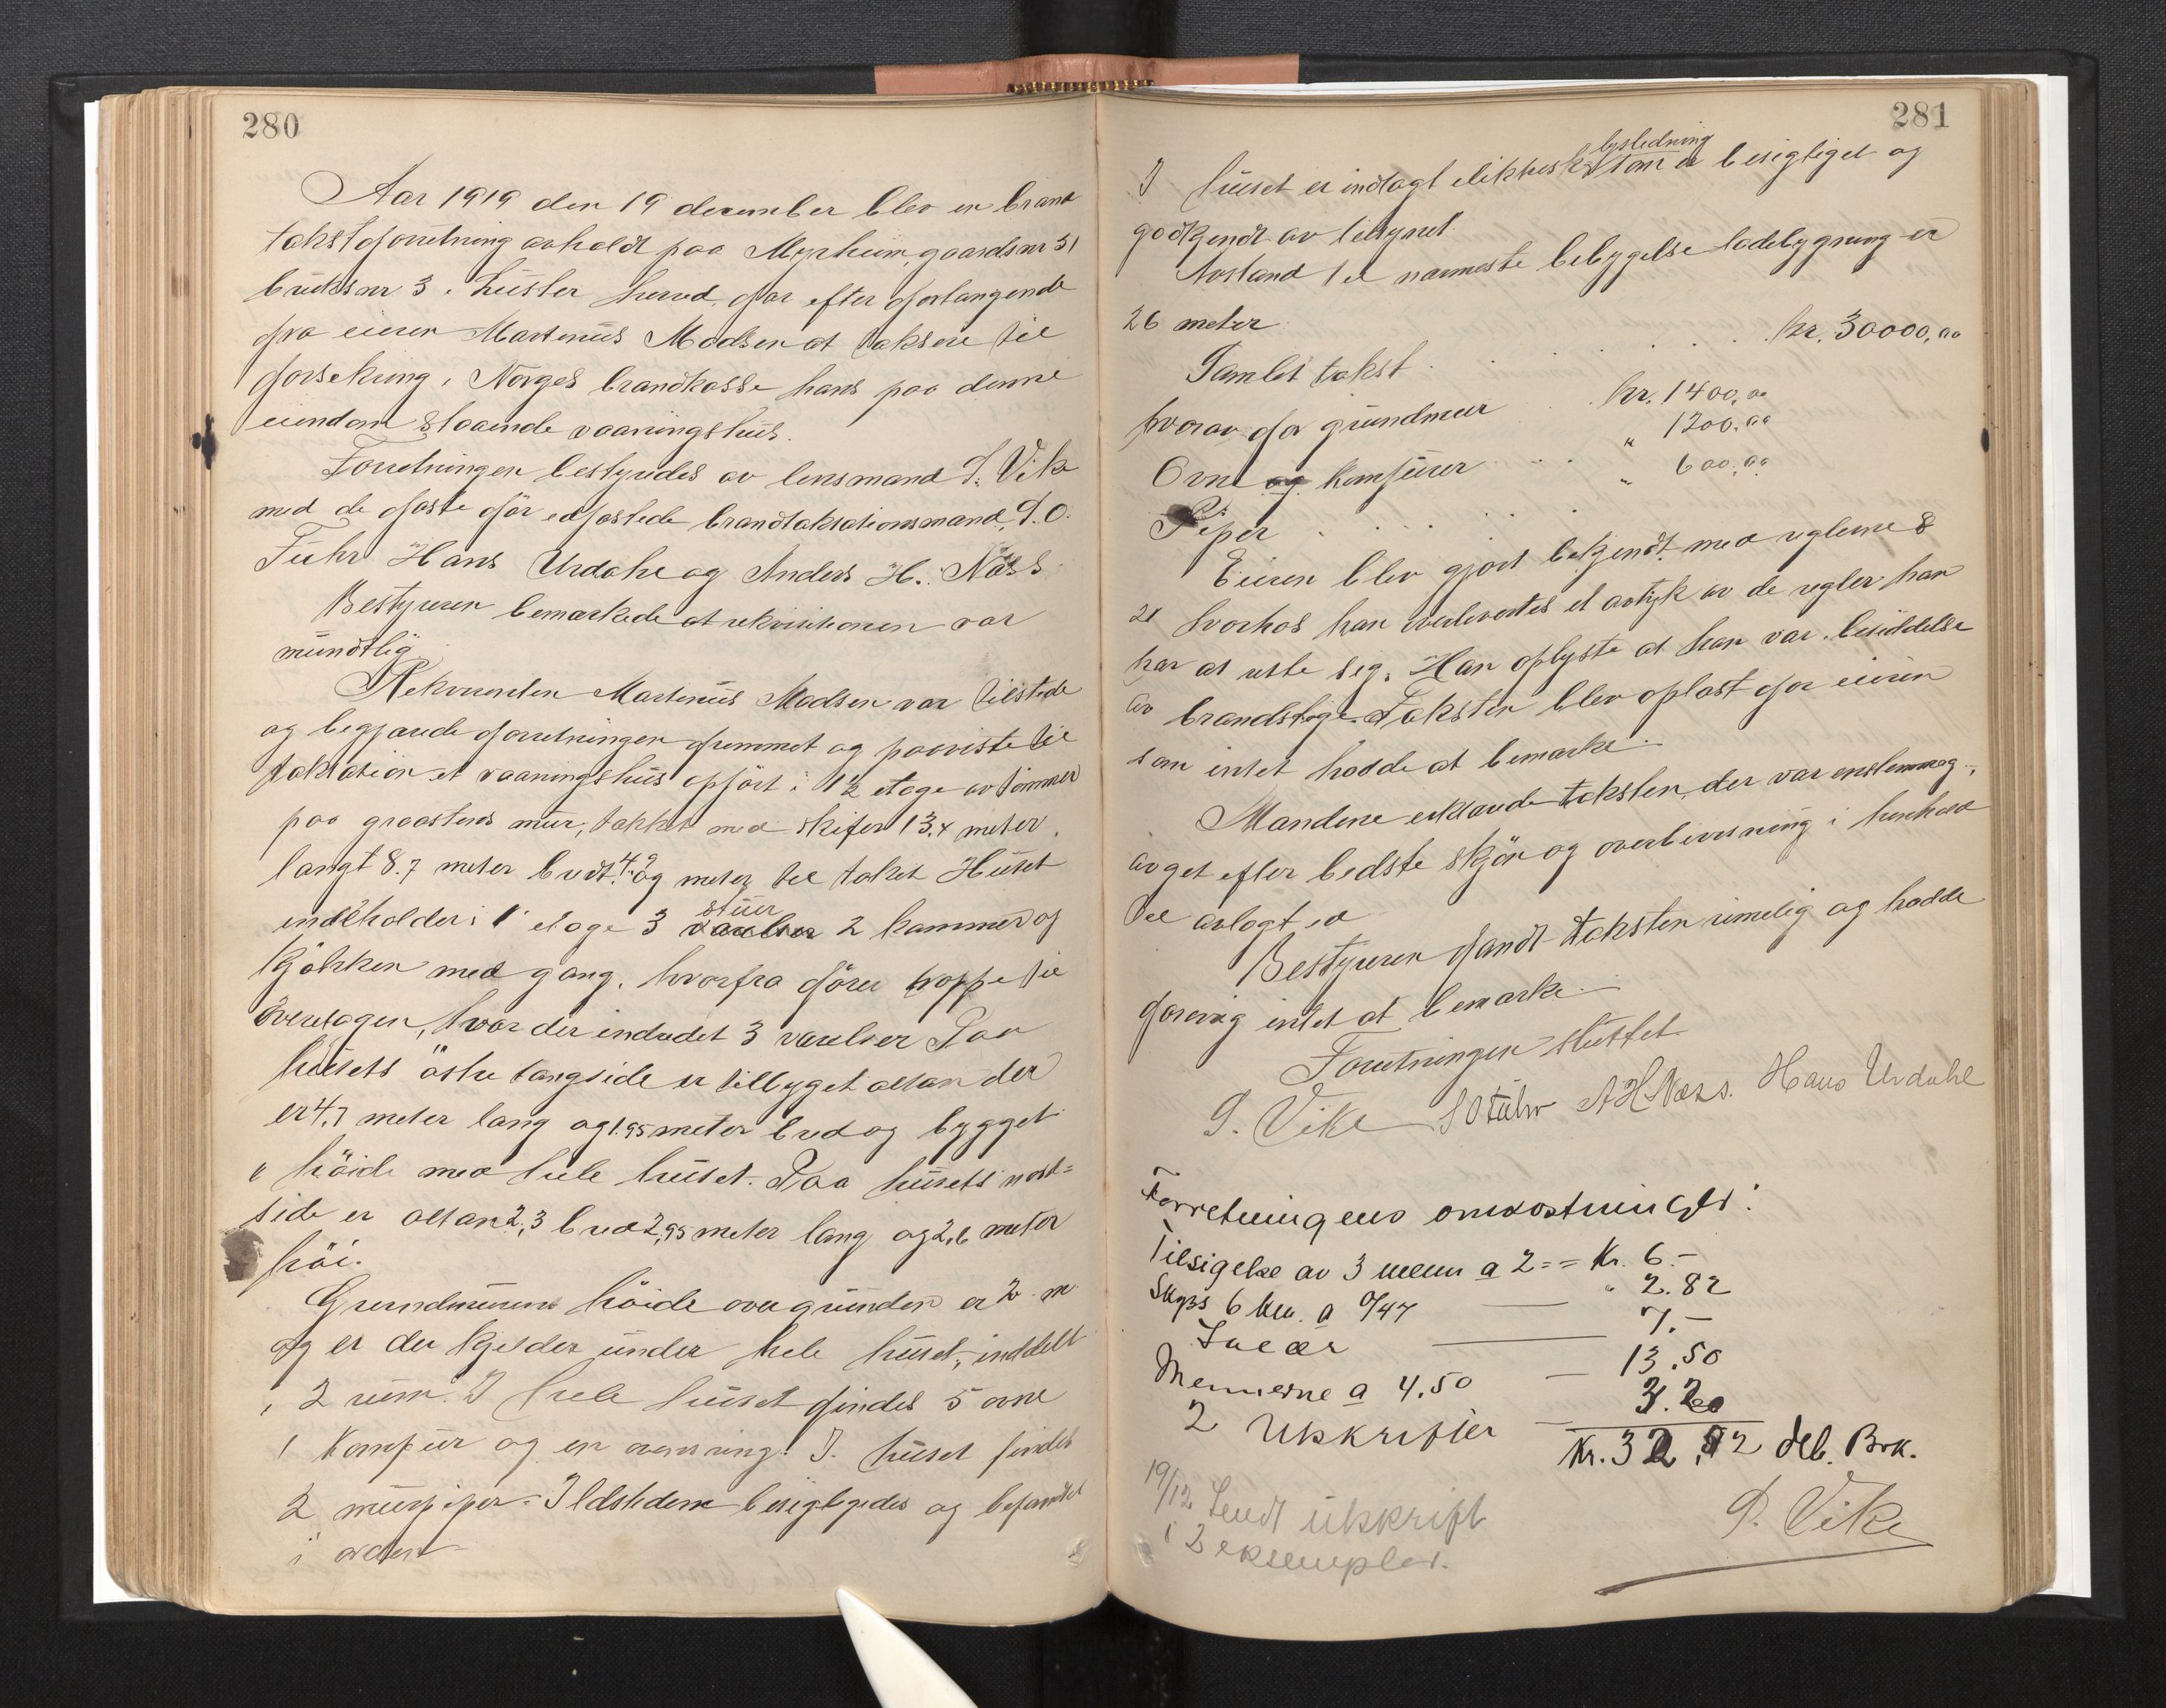 280
Aar 1919 den 19 december blev en brand
takstforretning avholdt paa Myrheim, gaardsnr 51
bruksnr 3 i Luster herred, for efter forlangende
fra eieren Martinus Madsen at taksere til
forsekring i Norges brandkasse hans paa denne
eiendom staaende vaaningshus.
Forretningen bestyredes av lensmand S. Vike
med de faste før edfæstede brandtakstionsmænd, S. O.
Fuhr Hans Urdahl og Anders H. Næss
Bestyreren bemærkede at rekvisitionen var
mundtlig
Rekvirenten Martinus Madsen var tilstede
og begjærede forretningen fremmet og paaviste til
taksation et vaaningshus opført i 1½ etage av tømmer
paa graastens mur, tækket med skifer 13.4 meter
langt 8.7 meter bredt 4.2 og meter til taket Huset
indeholder i 1 etage 3 stuer 2 kammer og
kjøkken med gang, hvorfra fører trappe til
øveretagen, hvor der indredet 3 værelser Paa
husets østre langside er tilbygget altan der
er 4,7 meter lang og 1.95 meter bred og bygget
i høide med hele huset. Paa husets nord-
side er altan 2,3 bred 2,95 meter lang og 2,6 meter
høi.
Grundmurens høide over grunden er 2 m
og er der kjelder under hele huset, inddelt
i 2 rum. I hele huset findes 5 ovne
1 komfur og en ovnsring. I huset findes
2 murpiper. Ildstederne besigtigedes og befandtes
i orden
281
lysledning
I huset er indlagt elektrisk som er besigtiget og
godkjendt av tilsynet
Avstand til nærmeste bebygelse ladebygning er
26 meter
Samlet takst . . . . kr. 30000,00
hvorav for grundmur . . kr. 1400,00
Ovne og komfurer . . . " 1200,00
Piper . . . . . " 600,00
Eieren blev gjort bekjendt med reglerne §
21 hvorhos han overleveredes et avtryk av de regler han
har at rette seg. Han oplyste at han var i besiddelse
av brandstige. Taksten blev oplæst for eieren
som intet hadde at bemærke.
Mændene erklærede taksten, der var enstemmig,
avget efter bedste skjøn og overbevisning i henhold
til avlagt ed
Bestyreren fandt taksten rimelig og hadde
forøvrig intet at bemærke
Forretningen sluttet
S. Vike S O Fuhr A H Næss. Hans Urdahl
Forretningens omkostninger:
Tilsigelse av 3 menn a 2 = = Kr. 6.-
Skyss 6 km. a 0/47 — " 2.82
Salær — 7.-
Mennerne a 4.50 — 13.50
2 Utskrifter — 3.20
Kr. 32.52 deb. Brk.
S. Vike
19/12 Sendt utskrift
i 2 eksempler.